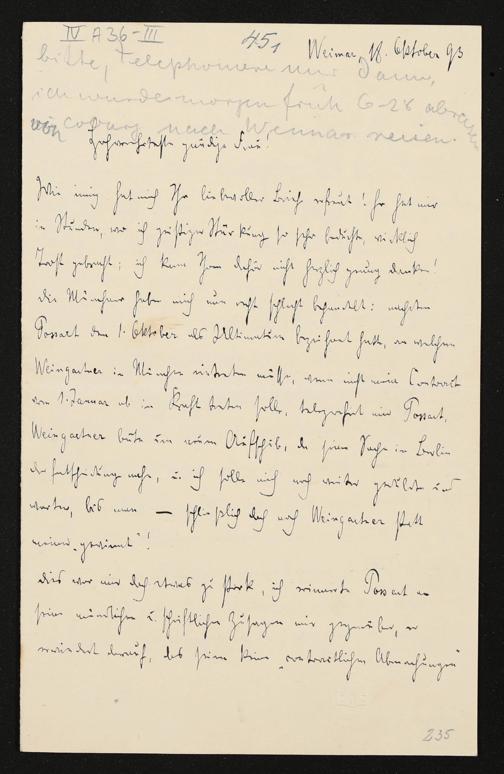 IV A 36-III
451
Weimar, 11. Oktober 93
bitte, telephonire mir dann,
ich würde morgen früh 6-28
von Coburg nach Weimar reisen.
Hochverehrteste gnädige Frau!
Wie innig hat mich Ihr liebevoller Brief erfreut! Er hat mir
in Stunden, wo ich geistiger Stärkung so sehr bedürfte, wirklich
Trost gebracht; ich kann Ihnen dafür nicht herzlich genug danken!
Die Münchner haben mich nun recht schlecht behandelt: nachdem
Possart den 1. Oktober als Ultimatum bezeichnet hatte, an welchem
Weingartner in München eintreten müsse, wenn nicht mein Contract
vom 1. Januar ab in Kraft treten solle, telegrafiert mir Possart,
Weingartner bäte um neuen Aufschub, da seine Sache in Berlin
der Entscheidung nahe, u. ich solle mich noch weiter gedulden und
warten, bis man — schließlich doch noch Weingartner statt
meiner „gewinnt"!
Dies war mir doch etwas zu stark, ich erinnerte Possart an
seine mündlichen u. schriftlichen Zusagen mir gegenüber, er
erwidert darauf, daß seien keine „contractlichen Abmachungen"
235